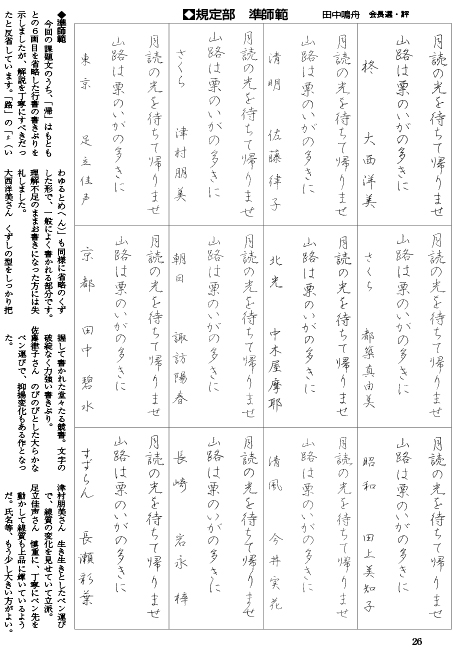 ◆規定部 準師範
田中鳴舟 会長選・評
月読の光を待ちて帰りませ
山路は栗のいがの多きに
柊 大西洋美
月読の光を待ちて帰りませ
山路は栗のいがの多きに
清明 佐藤律子
月読の光を待ちて帰りませ
山路は栗のいがの多きに
さくら 津村朋美
月読の光を待ちて帰りませ
山路は栗のいがの多きに
東京 足立佳声
月読の光を待ちて帰りませ
山路は栗のいがの多きに
さくら 都築真由美
月読の光を待ちて帰りませ
山路は栗のいがの多きに
北光 中木屋摩耶
月読の光を待ちて帰りませ
山路は栗のいがの多きに
朝日 諏訪陽春
月読の光を待ちて帰りませ
山路は栗のいがの多きに
京都 田中碧水
月読の光を待ちて帰りませ
山路は栗のいがの多きに
昭和 田上美知子
月読の光を待ちて帰りませ
山路は栗のいがの多きに
清風 今井実花
月読の光を待ちて帰りませ
山路は栗のいがの多きに
長崎 岩永梓
月読の光を待ちて帰りませ
山路は栗のいがの多きに
すずらん 長瀬彩葉
◆準師範
今回の課題文のうち、「帰」はもとも
との6画目を省略した行書の書きぶりを
示しましたが、解説を丁寧にすべきだっ
たと反省しています。「路」の「⻊(い
わゆるとめへん)」も同様に省略のくず
した形で、一般によく書かれる部分です。
理解不足のままお書きになった方には失
礼しました。
大西洋美さん くずしの型をしっかり把
握して書かれた堂々たる競書。文字の
破綻なく力強い書きぶり。
佐藤律子さん のびのびとした大らかな
ペン運びで、抑揚変化もある作となっ
た。
津村朋美さん 生き生きとしたペン運び
で、線質の変化を見せていて立派。
足立佳声さん 慎重に、丁寧にペン先を
動かして線質も上品に輝いているよう
だ。氏名等、もう少し大きい方がよい。
26